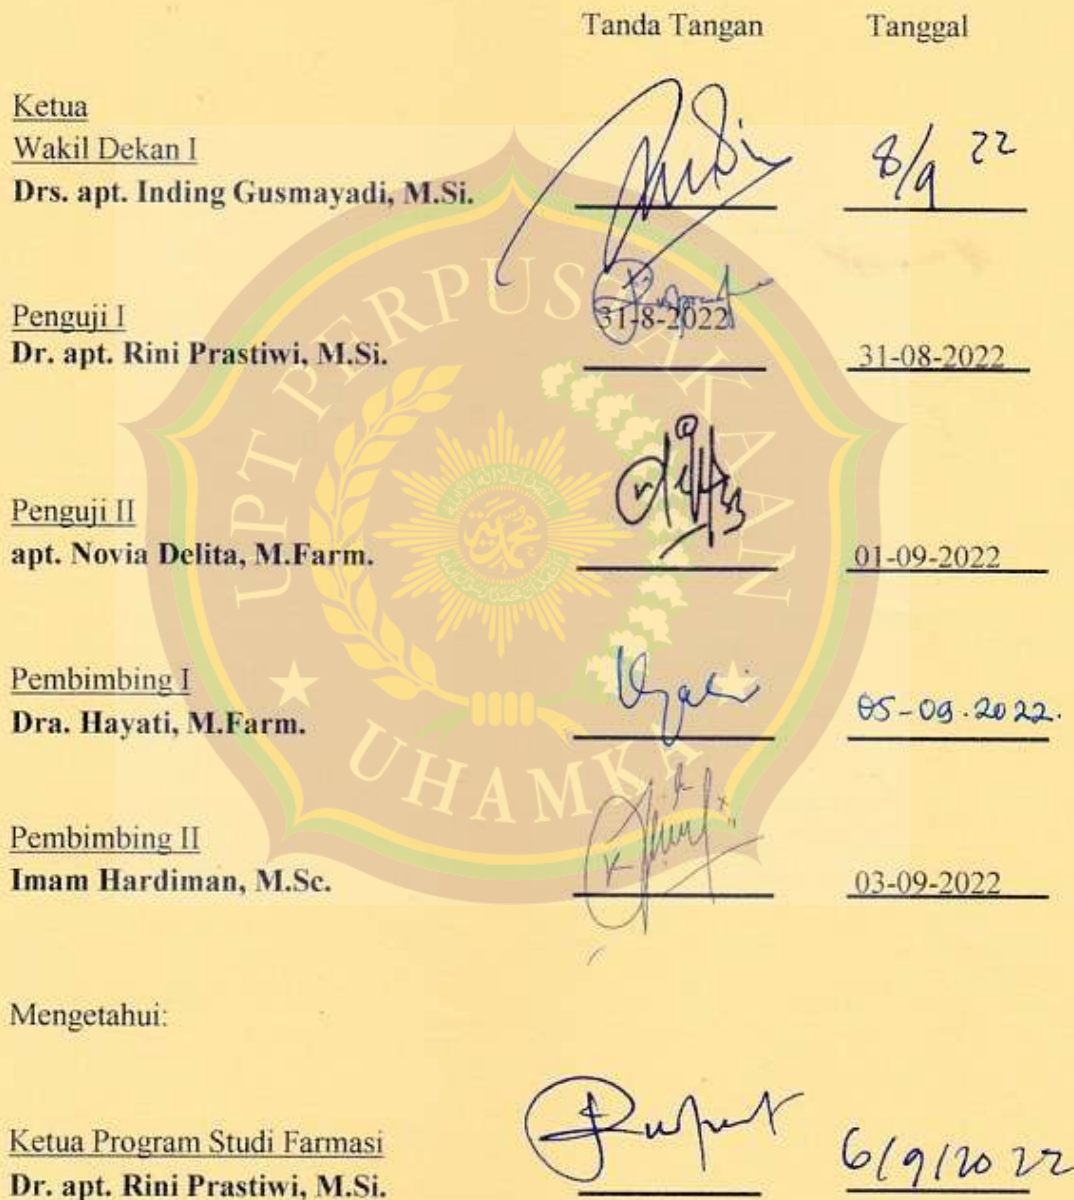 Tanda Tangan Tanggal
Ketua
Wakil Dekan I
Drs. apt. Inding Gusmayadi, M.Si.
8/9 22
Penguji I
31-8-2022
Dr. apt. Rini Prastiwi, M.Si.
31-08-2022
Penguji II
apt. Novia Delita, M.Farm.
01-09-2022
Pembimbing I
Dra. Hayati, M.Farm.
05-09.2022.
Pembimbing II
Imam Hardiman, M.Sc.
03-09-2022
Mengetahui:
Ketua Program Studi Farmasi
Dr. apt. Rini Prastiwi, M.Si.
6/9/2022
UPT PERPUSTAKAAN
UHAMKA